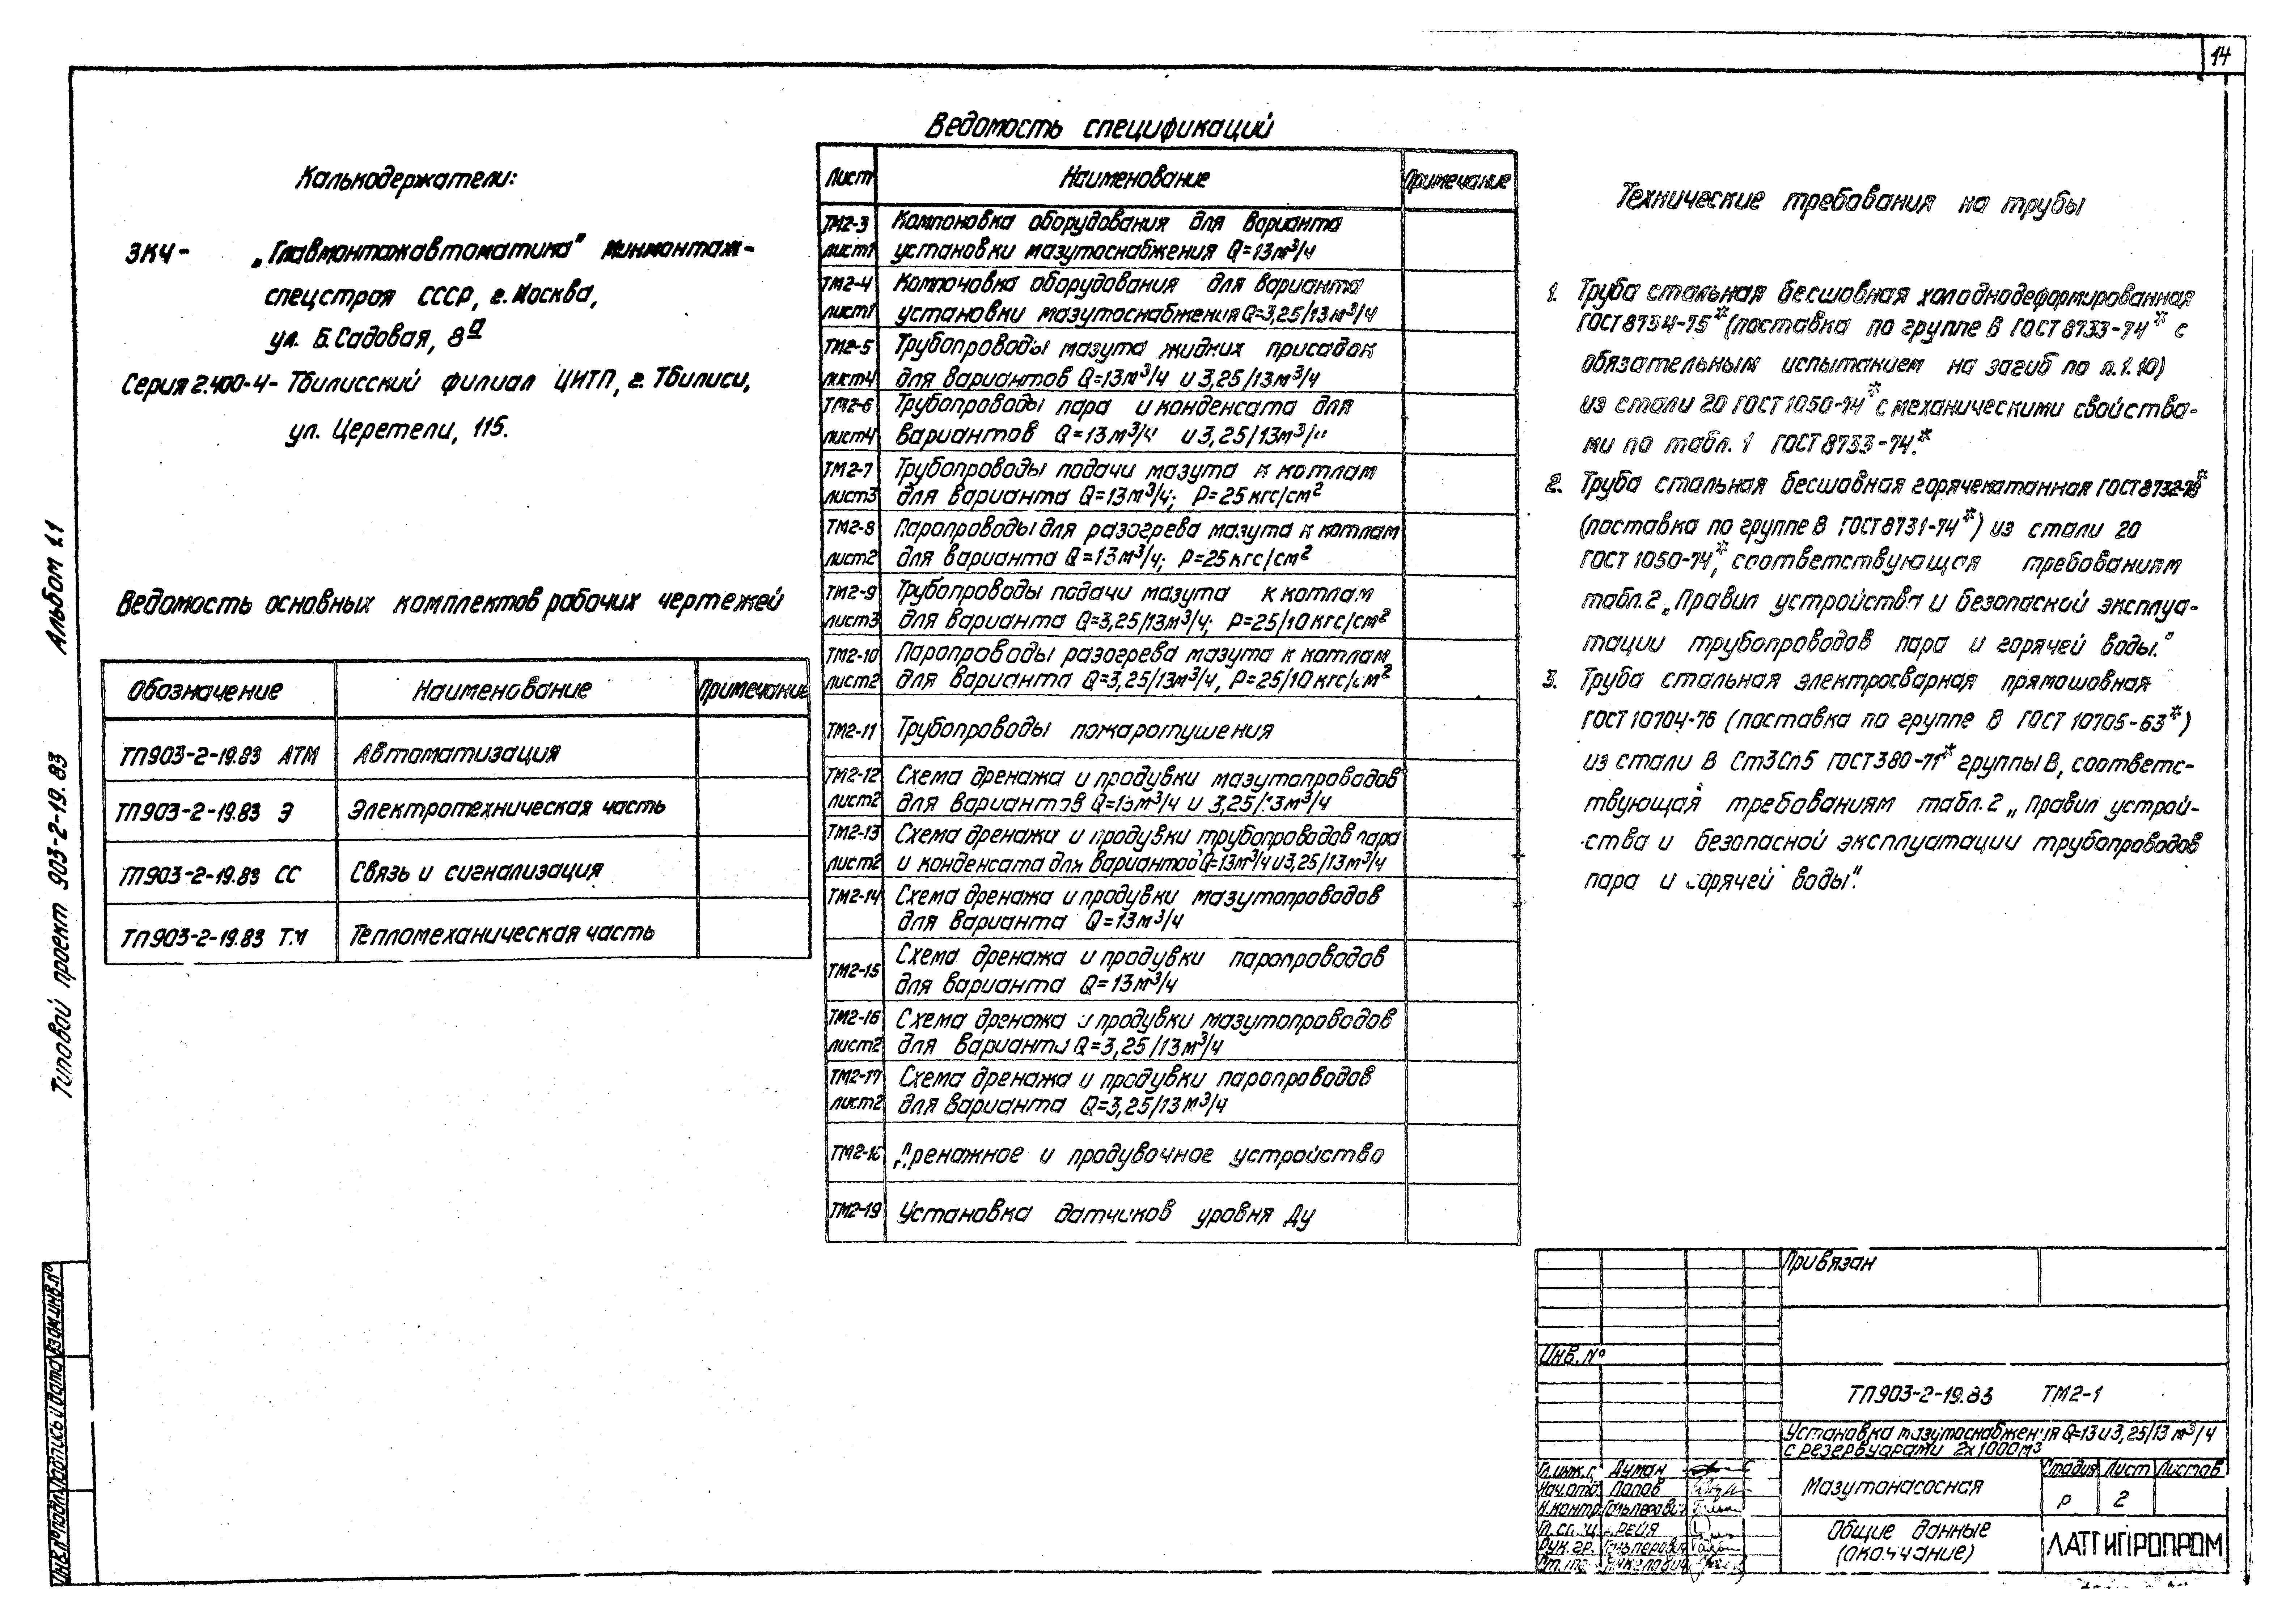 14
Калькодержатели:
ЗКЧ- „Главмонтажавтоматика" минмонтаж-
спецстроя СССР, г. Москва,
ул. Б. Садовая, 8а
Серия 2.400-4- Тбилисский филиал ЦИТП, г. Тбилиси,
ул. Церетели, 115.
Ведомость основных комплектов рабочих чертежей
Обозначение Наименование Примечание
ТП903-2-19.83 АТМ Автоматизация
ТП903-2-19.83 Э Электротехническая часть
ТП903-2-19.83 СС Связь и сигнализация
ТП903-2-19.83 ТМ Тепломеханическая часть
Ведомость спецификаций
Лист Наименование Примечание
ТМ2-3 Компоновка оборудования для варианта
лист1 установки мазутоснабжения Q=13м³/ч
ТМ2-4 Компоновка оборудования для варианта
лист1 установки мазутоснабжения Q=3,25/13м³/ч
ТМ2-5 Трубопроводы мазута жидких присадок
лист4 для вариантов Q=13м³/ч и 3,25/13м³/ч
ТМ2-6 Трубопроводы пара и конденсата для
лист4 вариантов Q=13м³/ч и 3,25/13м³/ч
ТМ2-7 Трубопроводы подачи мазута к котлам
лист3 для варианта Q=13м³/ч; P=25кгс/см²
ТМ2-8 Паропроводы для разогрева мазута к котлам
лист2 для варианта Q=13м³/ч; P=25кгс/см²
ТМ2-9 Трубопроводы подачи мазута к котлам
лист3 для варианта Q=3,25/13м³/ч; P=25/10кгс/см²
ТМ2-10 Паропроводы разогрева мазута к котлам
лист2 для варианта Q=3,25/13м³/ч, P=25/10кгс/см²
ТМ2-11 Трубопроводы пожаротушения
ТМ2-12 Схема дренажа и продувки мазутопроводов
лист2 для вариантов Q=13м³/ч и 3,25/13м³/ч
ТМ2-13 Схема дренажи и продувки трубопроводов пара
лист2 и конденсата для вариантов Q=13м³/ч и 3,25/13м³/ч
ТМ2-14 Схема дренажа и продувки мазутопроводов
для варианта Q=13м³/ч
ТМ2-15 Схема дренажа и продувки паропроводов
для варианта Q=13м³/ч
ТМ2-16 Схема дренажа и продувки мазутопроводов
лист2 для варианта Q=3,25/13м³/ч
ТМ2-17 Схема дренажа и продувки паропроводов
лист2 для варианта Q=3,25/13м³/ч
Дренажное и продувочное устройство
ТМ2-19 Установка датчиков уровня Ду
Технические требования на трубы
1. Труба стальная бесшовная холоднодеформированная
ГОСТ8734-75* (поставка по группе В ГОСТ8733-74* с
обязательным испытанием на загиб по п.1.10)
из стали 20 ГОСТ1050-74* с механическими свойства-
ми по табл. 1 ГОСТ8733-74.*
2. Труба стальная бесшовная горячекатанная ГОСТ8732-78*
(поставка по группе В ГОСТ8731-74*) из стали 20
ГОСТ1050-74*, соответствующая требованиям
табл.2 „Правил устройства и безопасной эксплуа-
тации трубопроводов пара и горячей воды."
3. Труба стальная электросварная прямошовная
ГОСТ10704-76 (поставка по группе В ГОСТ 10705-63*)
из стали В Ст3Сп5 ГОСТ380-71* группы В, соответс-
твующая требованиям табл.2 „Правил устрой-
ства и безопасной эксплуатации трубопроводов
пара и горячей воды".
Альбом 1.1
Типовой проект 903-2-19.83
Взам.инв.№
Подпись и дата
Инв.№подл.
Привязан
Инв.№
ТП903-2-19.83 ТМ2-1
Установка мазутоснабжения Q=13 и 3,25/13 м³/ч
с резервуарами 2х1000м³
Гл.инж.п. Думан
Нач.отд. Попов
Н.контр. Гальперович
Рук.гр. Гальперович
Мазутонасосная
Стадия Лист Листов
Р 2
Общие данные
(окончание)
ЛАТГИПРОПРОМ